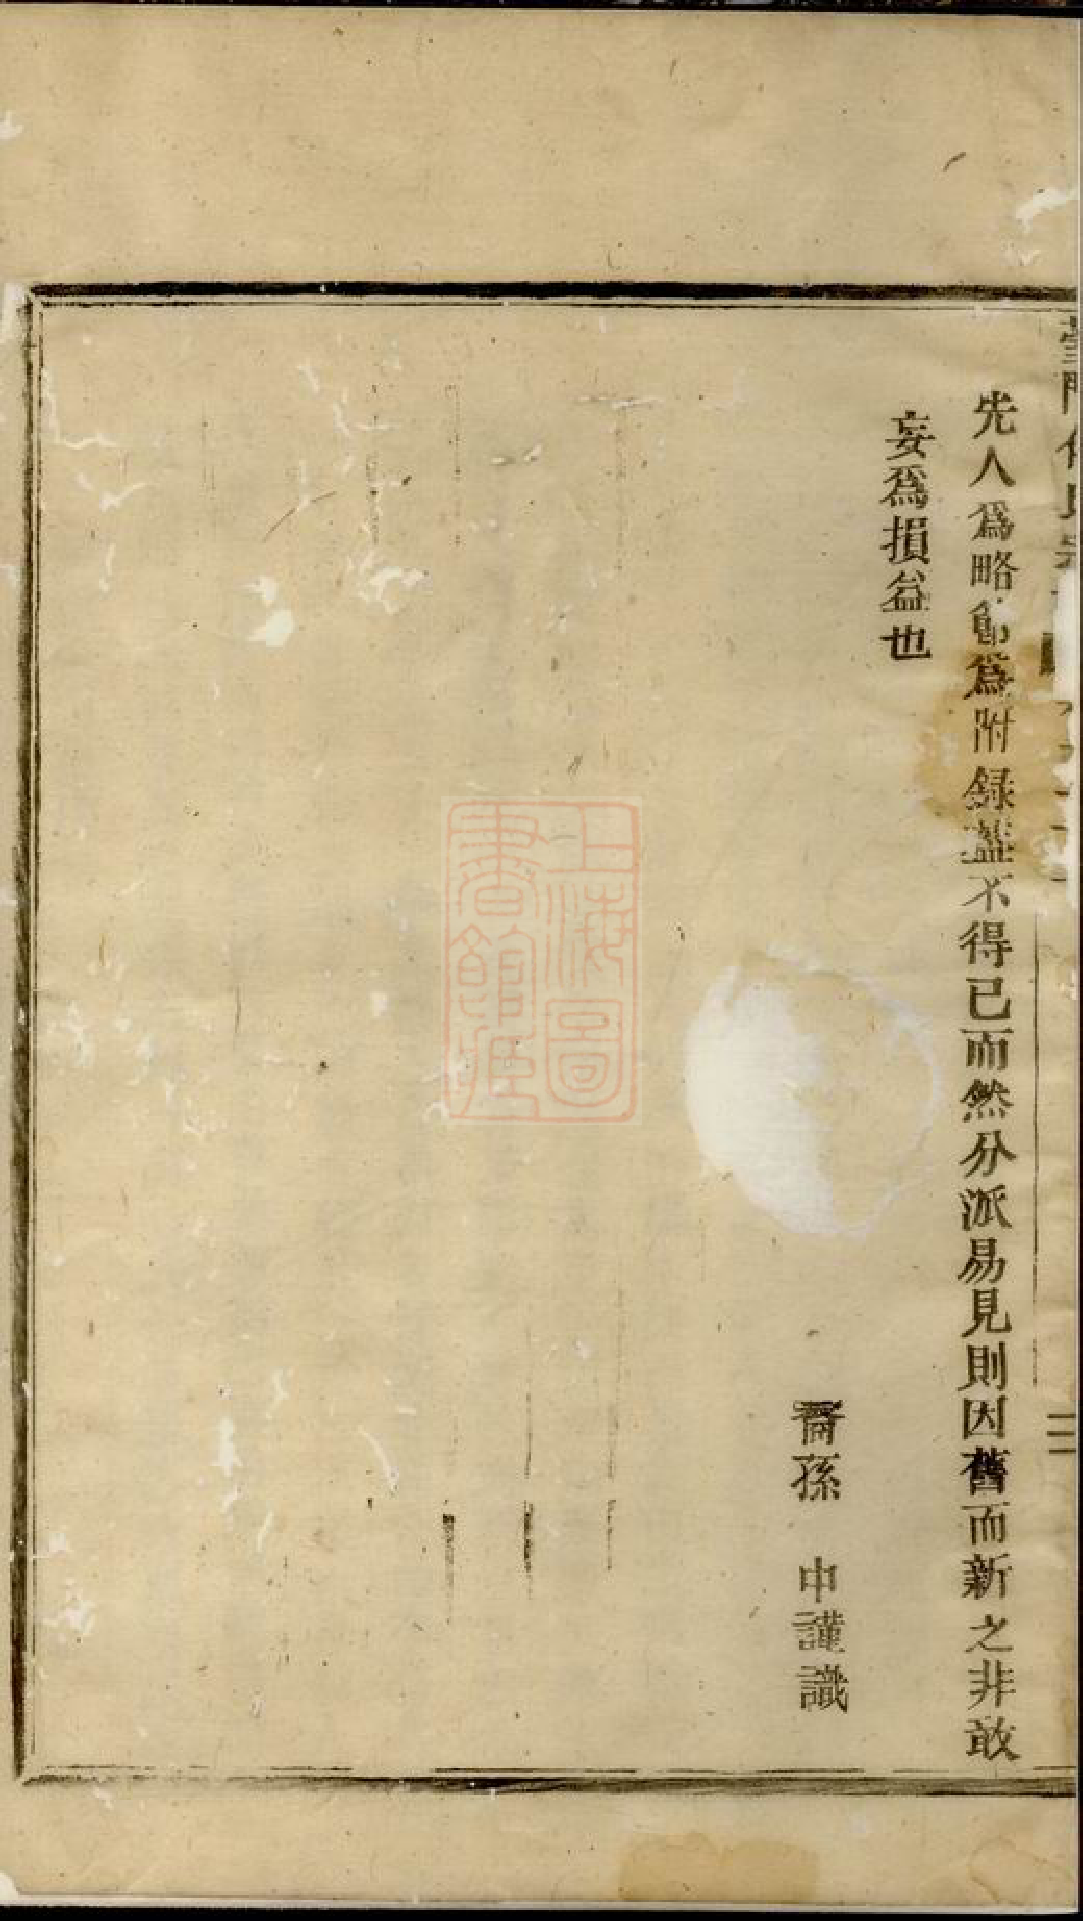 先人爲略節爲附録蓋不得已而然分派易見則因舊而新之非敢
妄爲損益也
裔孫　申謹識
上海圖
書館藏